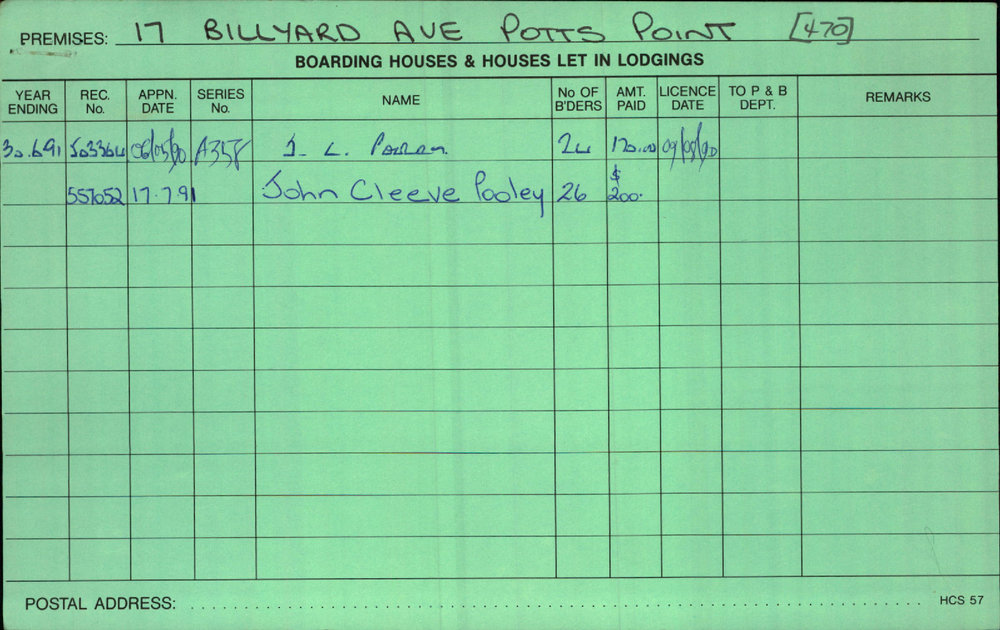 PREMISES: 17 BILLYARD AVE POTTS POINT [470]
BOARDING HOUSES & HOUSES LET IN LODGINGS
YEAR ENDING REC. No. APPN. DATE SERIES No. NAME No OF B'DERS AMT. PAID LICENCE DATE TO P & B DEPT. REMARKS
30.6.91 J03364 06/05/90 A358 J. L. 24 170.00 09/05/90
557052 17.7.91 John Cleeve Pooley 26 $200.
POSTAL ADDRESS:
HCS 57